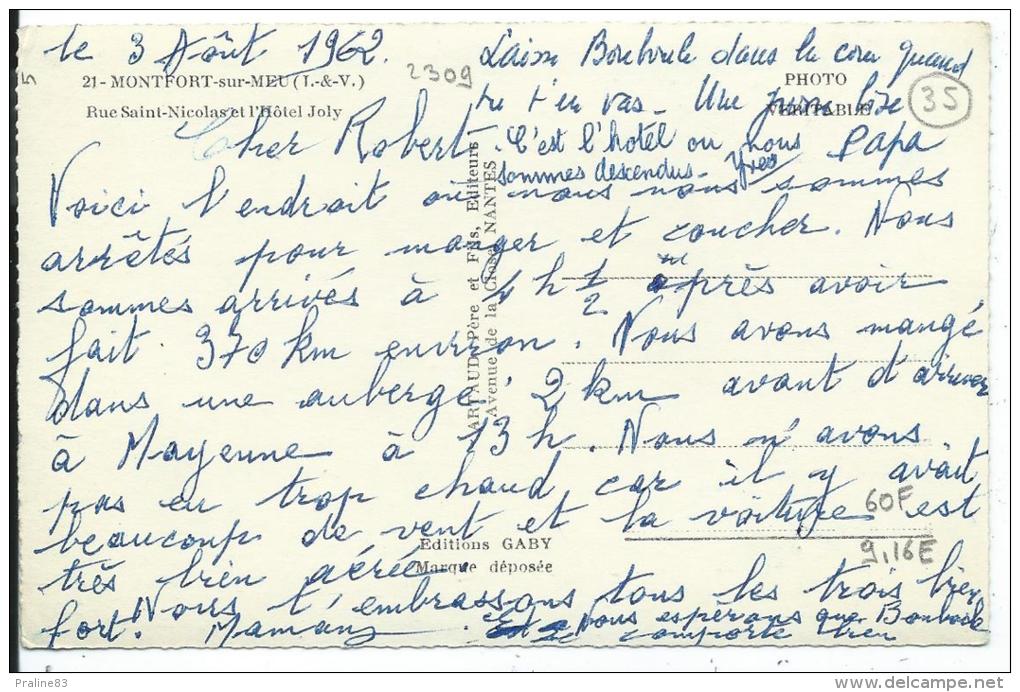 le 3 Août 1962.
21 - MONTFORT-sur-MEU (I.-&-V.)
Rue Saint-Nicolas et l'Hôtel Joly
2309
5
Laisse Bouboule dans la cour quand
tu t'en vas - Une grosse bise
Papa
PHOTO
VÉRITABLE
35
C'est l'hôtel ou nous
sommes descendus - Yves
Cher Robert
Voici l'endroit où nous nous sommes
arrêtés pour manger et coucher. Nous
sommes arrivés à 4 h 1/2 après avoir
fait 370 km environ. Nous avons mangé
dans une auberge, 2 km avant d'arriver
à Mayenne à 13 h. Nous n'avons
pas eu trop chaud car il y avait
beaucoup de vent et la voiture est
très bien aérée.
Nous t'embrassons tous les trois bien
fort. Maman
Nous espérons que Bouboule
se comporte bien
ARTAUD Père et Fils, Editeurs
Avenue de la Close, NANTES
Editions GABY
Marque déposée
60F
9,16E
Praline83
www.delcampe.net